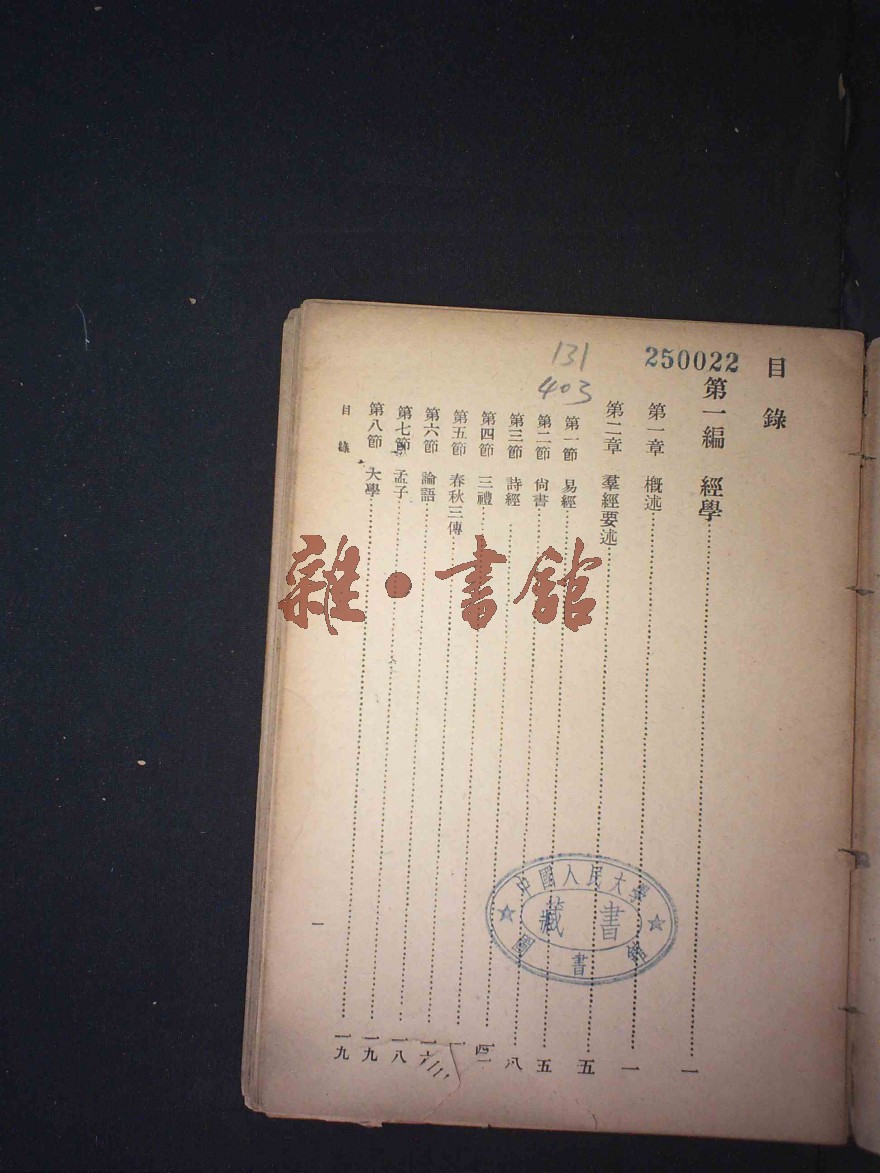 目錄
250022
131
403
第一編 經學……一
第一章 概述……一
第二章 羣經要述……五
第一節 易經……五
第二節 尙書……八
第三節 詩經……
第四節 三禮……
第五節 春秋三傳……一六
第六節 論語……一八
第七節 孟子……一九
第八節 大學……一九
目錄
一
雜·書館
中國人民大學
藏書
圖書館